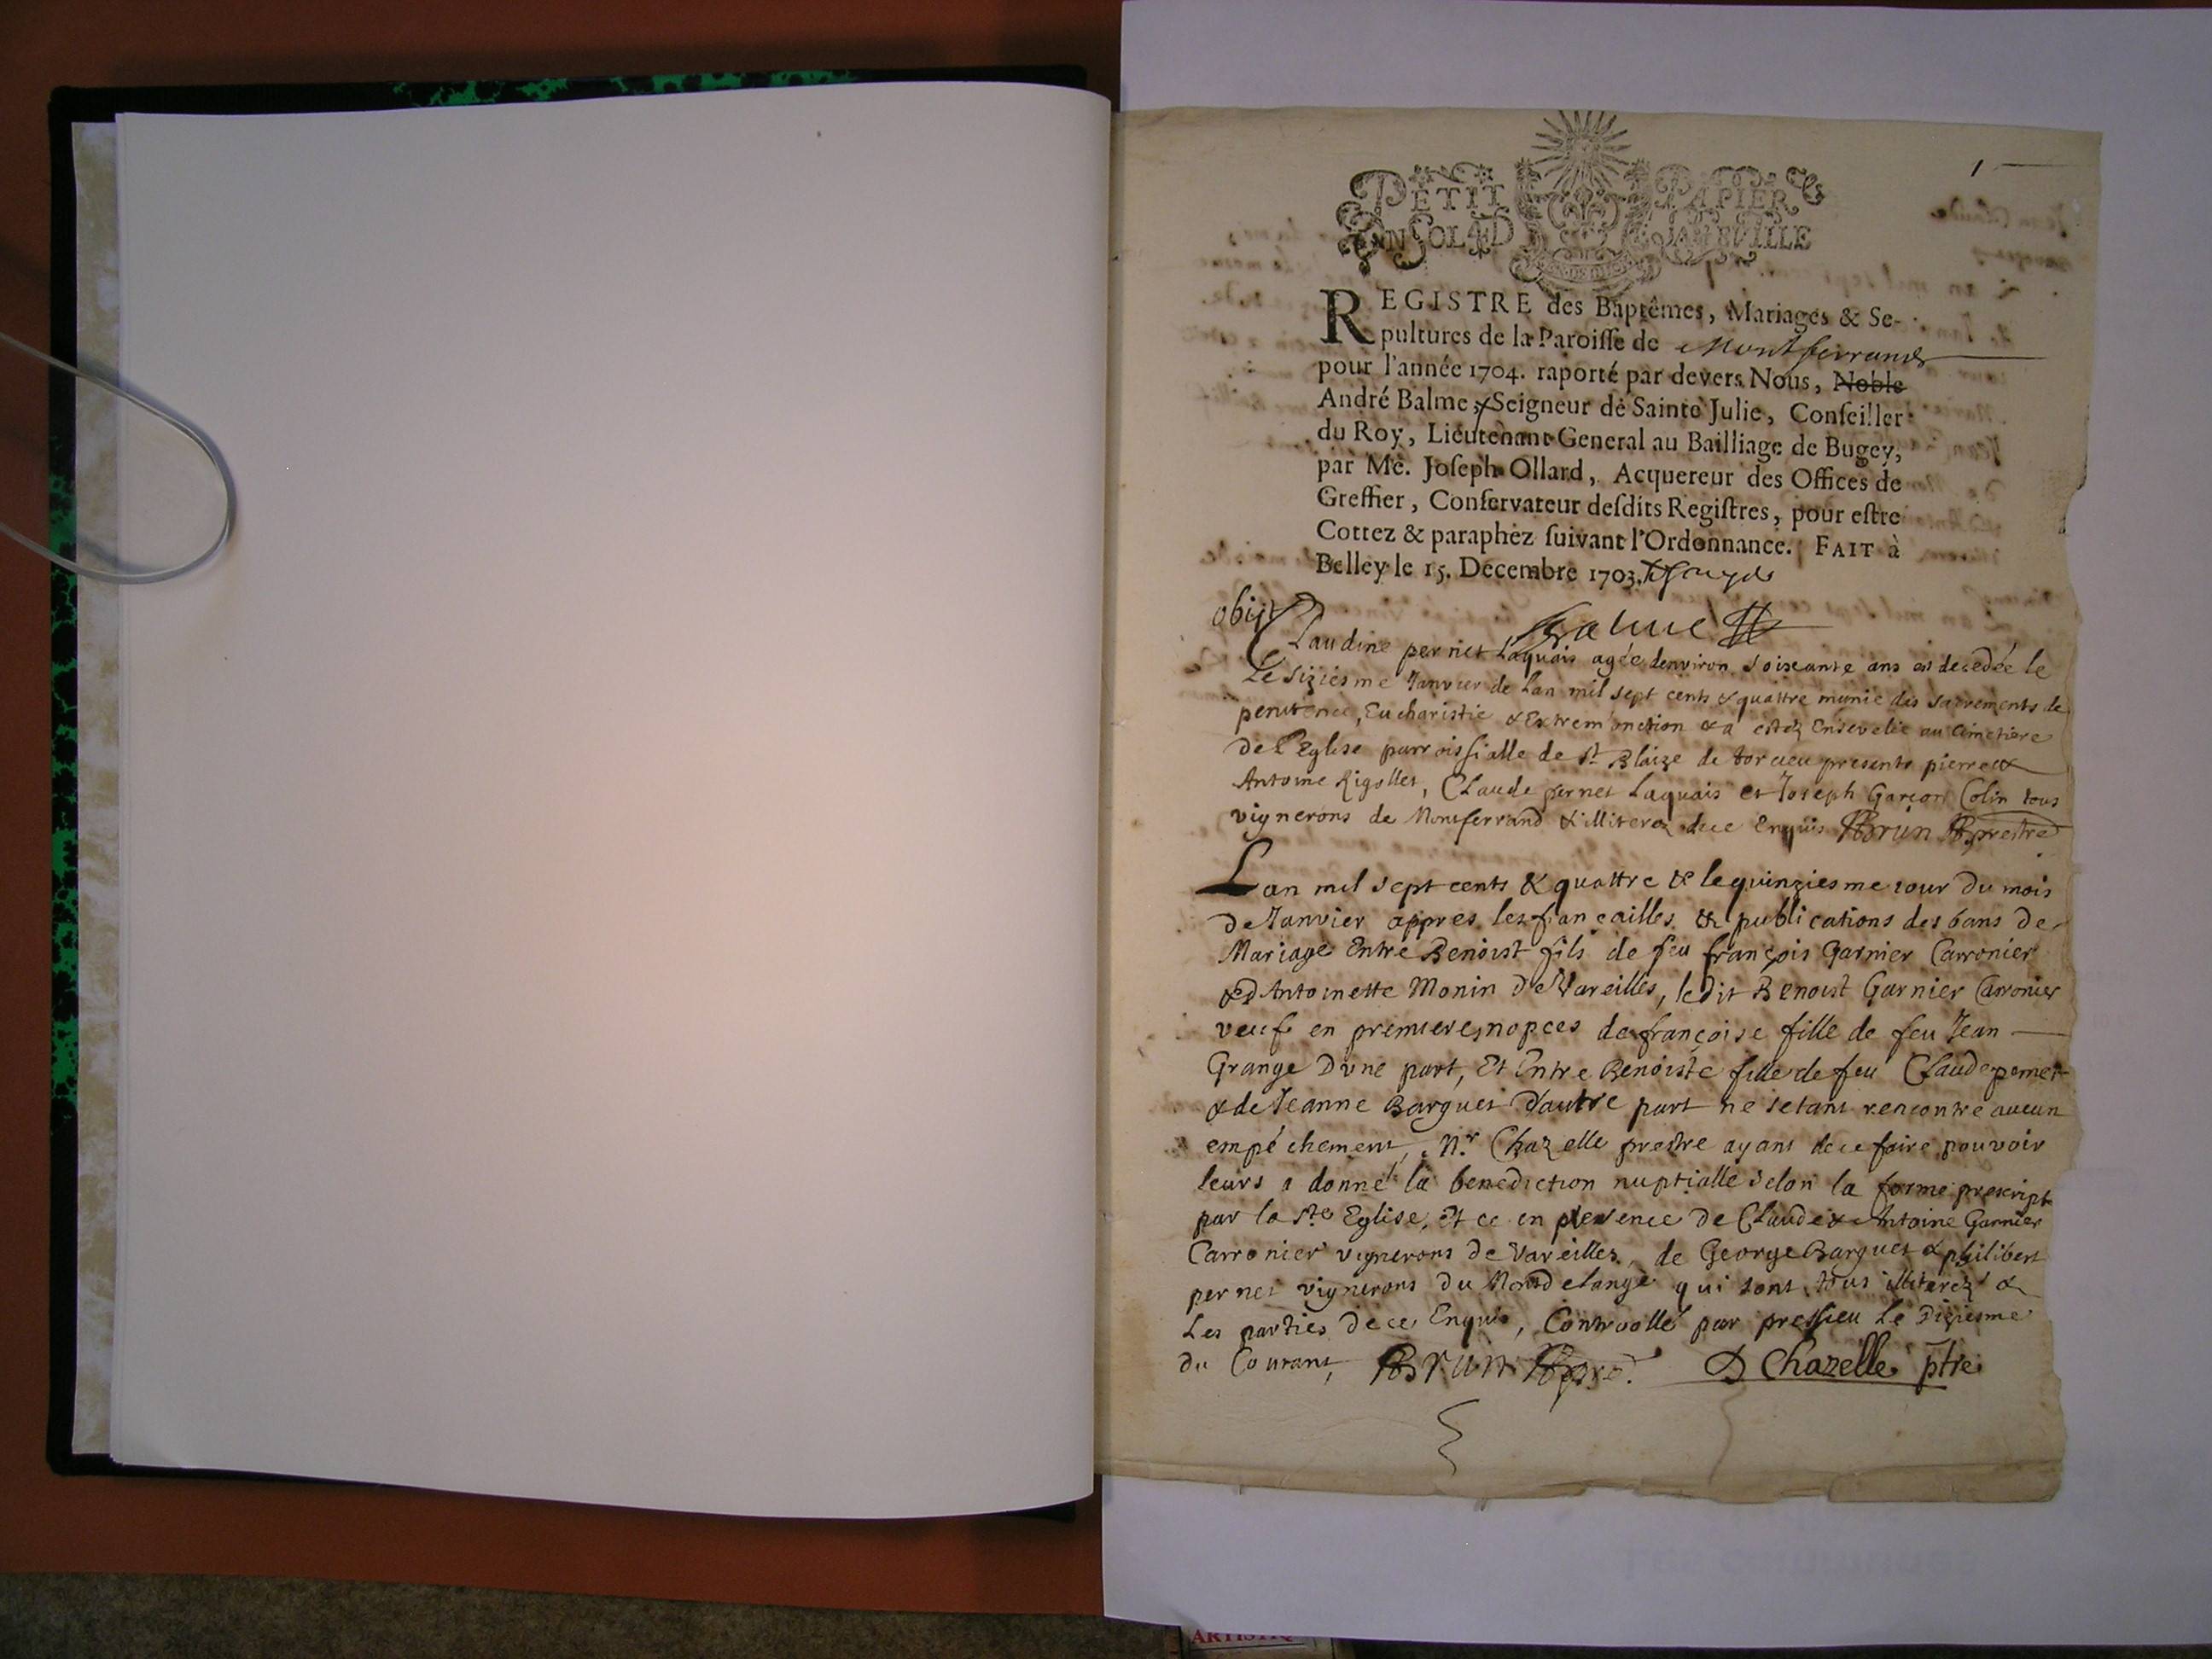 1
PETIT PAPIER
UN SOL 4D LA FEVILLE
REGISTRE des Baptêmes, Mariages & Se-
pultures de la Paroisse de Montferrand
pour l'année 1704. raporté par devers Nous, Noble
André Balme, Seigneur de Sainte Julie, Conseiller
du Roy, Lieutenant General au Bailliage de Bugey,
par Me. Joseph Ollard, Acquereur des Offices de
Greffier, Conservateur desdits Registres, pour estre
Cottez & paraphez suivant l'Ordonnance. FAIT à
Belley le 15. Decembre 1703.
Balme
obijt
Claudine pernet Laquais agée denviron soixante ans est decedée le
Le siziesme Janvier de Lan mil sept cents & quattre munie des sacrements de
penitence, Eucharistie & Extremonction & a estez Ensevelie au Cimetiere
De l'Eglise parroissialle de st Blaize de torcieu presents pierre &
Antoine Rigollet, Claude pernet Laquais et Joseph Garçon Colin tous
vignerons de Montferrand & illiterez dece Enquis Brun prestre
Lan mil sept cents & quattre & le quinziesme iour du mois
de Janvier appres les fiançailles & publications des bans de
Mariage Entre Benoist fils de feu françois Garnier Carronier
& d Antoinette Monin de Vareilles, ledit Benoist Garnier Carronier
veuf en premieres nopces de françoise fille de feu Jean
Grange Dune part, Et Entre Benoiste fille de feu Claude pernet
& de Jeanne Barguet d'autre part ne setant rencontre aucun
empéchement, Mr. Chazelle prestre ayant de ce faire pouvoir
leurs a donné la benediction nuptialle selon la forme prescript
par la ste Eglise, Et ce en presence de Claude & Antoine Garnier
Carronier vignerons de Vareilles, de George Barguet & philibert
pernet vignerons du Montdelange qui sont tous illiterez &
Les parties de ce Enquis, Controollé par pressieu le Diziesme
du Courant, Brun pre. D Chazelle ptre
ARTISTIQ